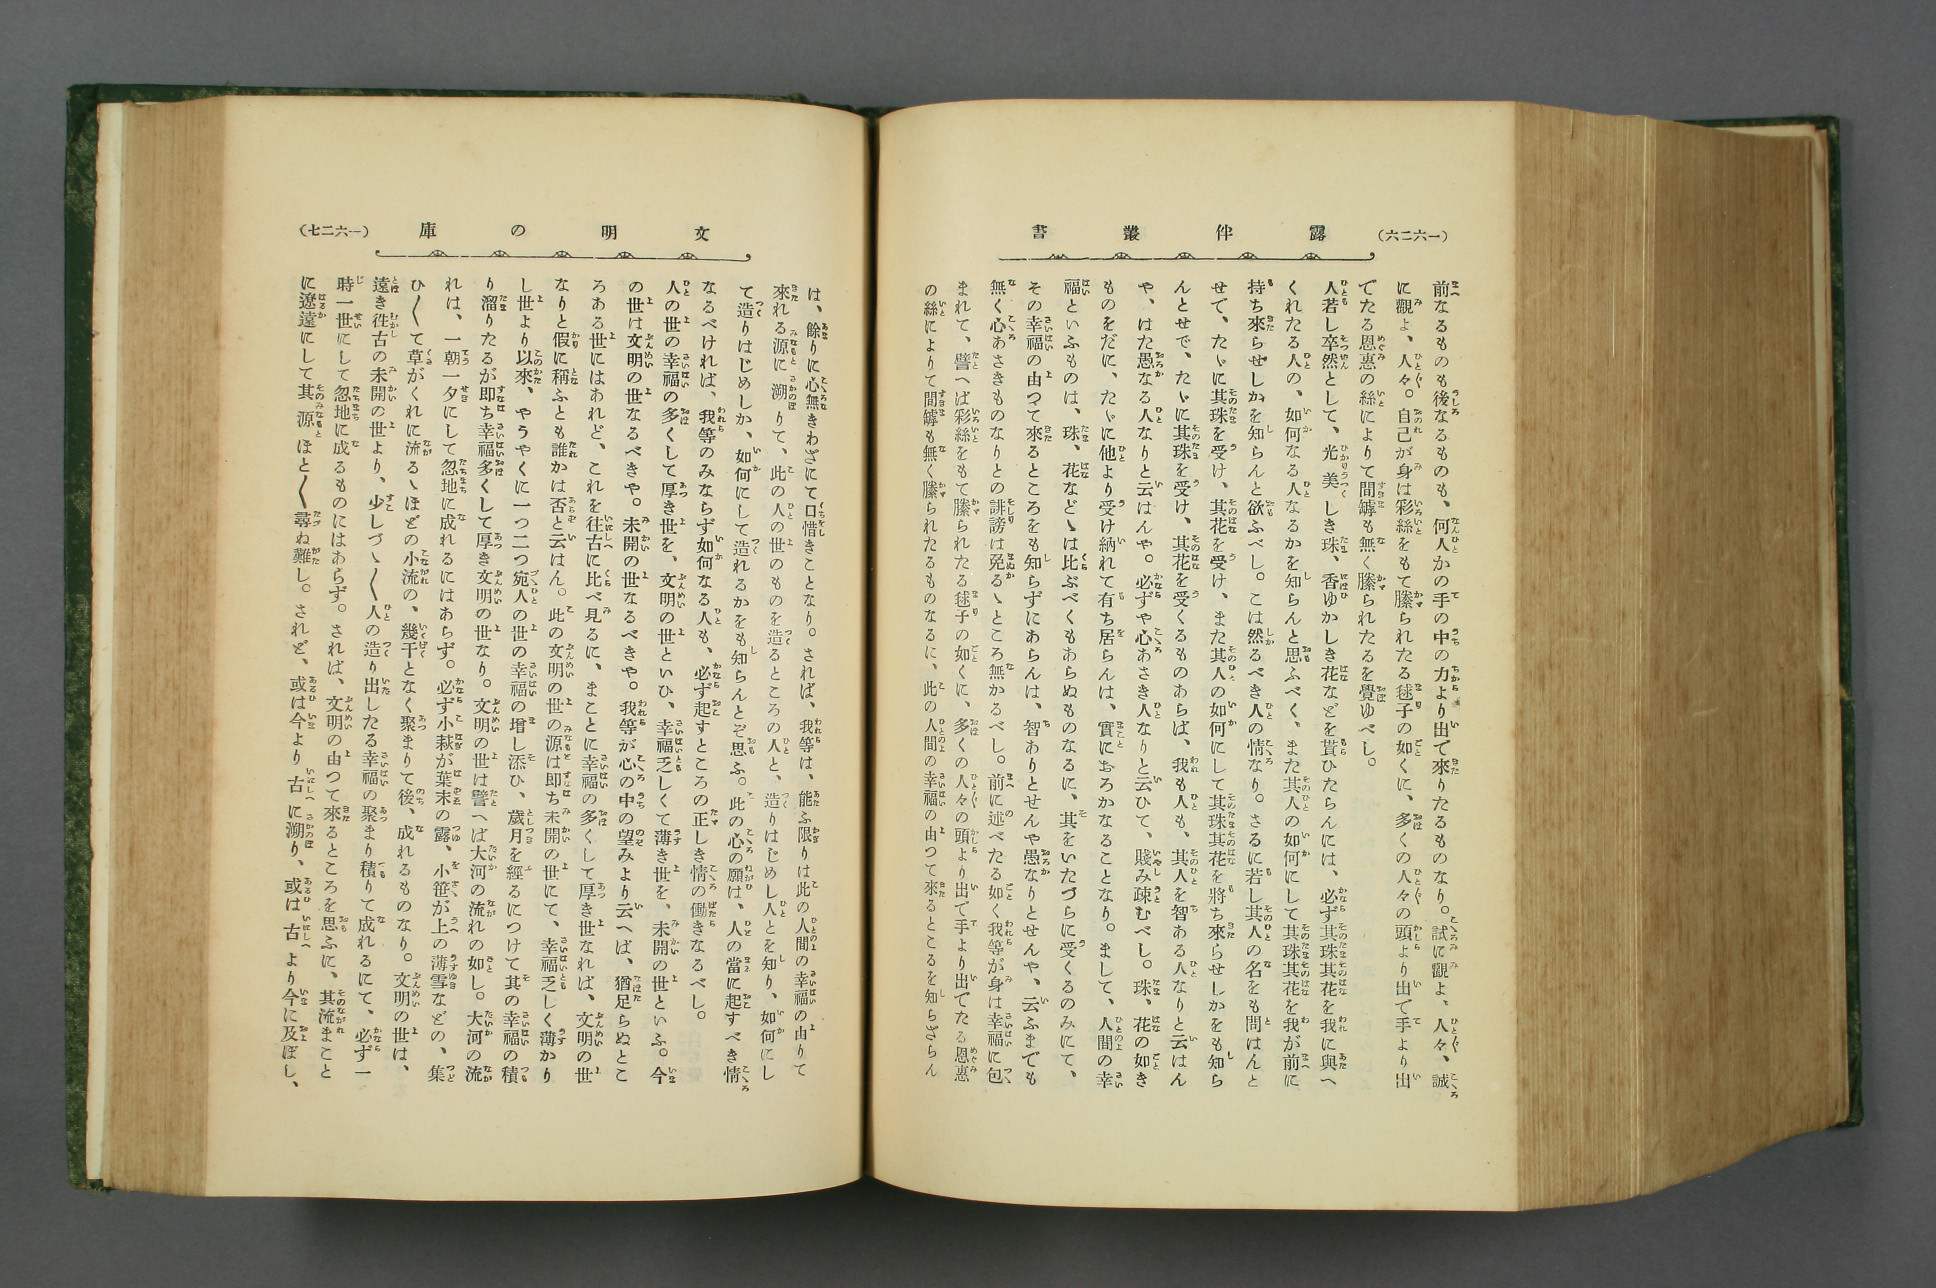 (一六二六)
露伴叢書
前なるものも後なるものも、何人かの手の中の力より出で來りたるものなり。試に觀よ、人々、誠
に觀よ、人々。自己が身は彩絲をもて縢られたる毬子の如くに、多くの人々の頭より出で手より出
でたる恩惠の絲によりて間罅も無く縢られたるを覺ゆべし。
人若し卒然として、光美しき珠、香ゆかしき花などを貰ひたらんには、必ず其珠其花を我に與へ
くれたる人の、如何なる人なるかを知らんと思ふべく、また其人の如何にして其珠其花を我が前に
持ち來らせしかを知らんと欲ふべし。こは然るべき人の情なり。さるに若し其人の名をも問はんと
せで、たゞに其珠を受け、其花を受け、また其人の如何にして其珠其花を將ち來らせしかをも知ら
んとせで、たゞに其珠を受け、其花を受くるものあらば、我も人も、其人を智ある人なりと云はん
や、はた愚なる人なりと云はんや。必ずや心あさき人なりと云ひて、賤み疎むべし。珠、花の如き
ものをだに、たゞに他より受け納れて有ち居らんは、實におろかなることなり。まして、人間の幸
福といふものは、珠、花などゝは比ぶべくもあらぬものなるに、其をいたづらに受くるのみにて、
その幸福の由つて來るところをも知らずにあらんは、智ありとせんや愚なりとせんや、云ふまでも
無く心あさきものなりとの誹謗は免るゝところ無かるべし。前に述べたる如く我等が身は幸福に包
まれて、譬へば彩絲をもて縢られたる毬子の如くに、多くの人々の頭より出で手より出でたる恩惠
の絲によりて間罅も無く縢られたるものなるに、此の人間の幸福の由つて來るところを知らざらん
文明の庫
(一六二七)
は、餘りに心無きわざにて口惜きことなり。されば、我等は、能ふ限りは此の人間の幸福の由りて
來れる源に溯りて、此の人の世のものを造るところの人と、造りはじめし人とを知り、如何にし
て造りはじめしか、如何にして造れるかをも知らんとぞ思ふ。此の心の願は、人の當に起すべき情
なるべければ、我等のみならず如何なる人も、必ず起すところの正しき情の働きなるべし。
人の世の幸福の多くして厚き世を、文明の世といひ、幸福乏しくて薄き世を、未開の世といふ。今
の世は文明の世なるべきや。未開の世なるべきや。我等が心の中の望みより云へば、猶足らぬとこ
ろある世にはあれど、これを往古に比べ見るに、まことに幸福の多くして厚き世なれば、文明の世
なりと假に稱ふとも誰かは否と云はん。此の文明の世の源は即ち未開の世にて、幸福乏しく薄かり
し世より以來、やうやくに一つ二つ宛人の世の幸福の增し添ひ、歲月を經るにつけて其の幸福の積
り溜りたるが即ち幸福多くして厚き文明の世なり。文明の世は譬へば大河の流れの如し。大河の流
れは、一朝一夕にして忽地に成れるにはあらず。必ず小萩が葉末の露、小笹が上の薄雪などの、集
ひ〳〵て草がくれに流るゝほどの小流の、幾干となく聚まりて後、成れるものなり。文明の世は、
遠き徃古の未開の世より、少しづゝ〳〵人の造り出したる幸福の聚まり積りて成れるにて、必ず一
時一世にして忽地に成るものにはあらず。されば、文明の由つて來るところを思ふに、其流まこと
に遼遠にして其源ほと〳〵尋ね難し。されど、或は今より古に溯り、或は古より今に及ぼし、